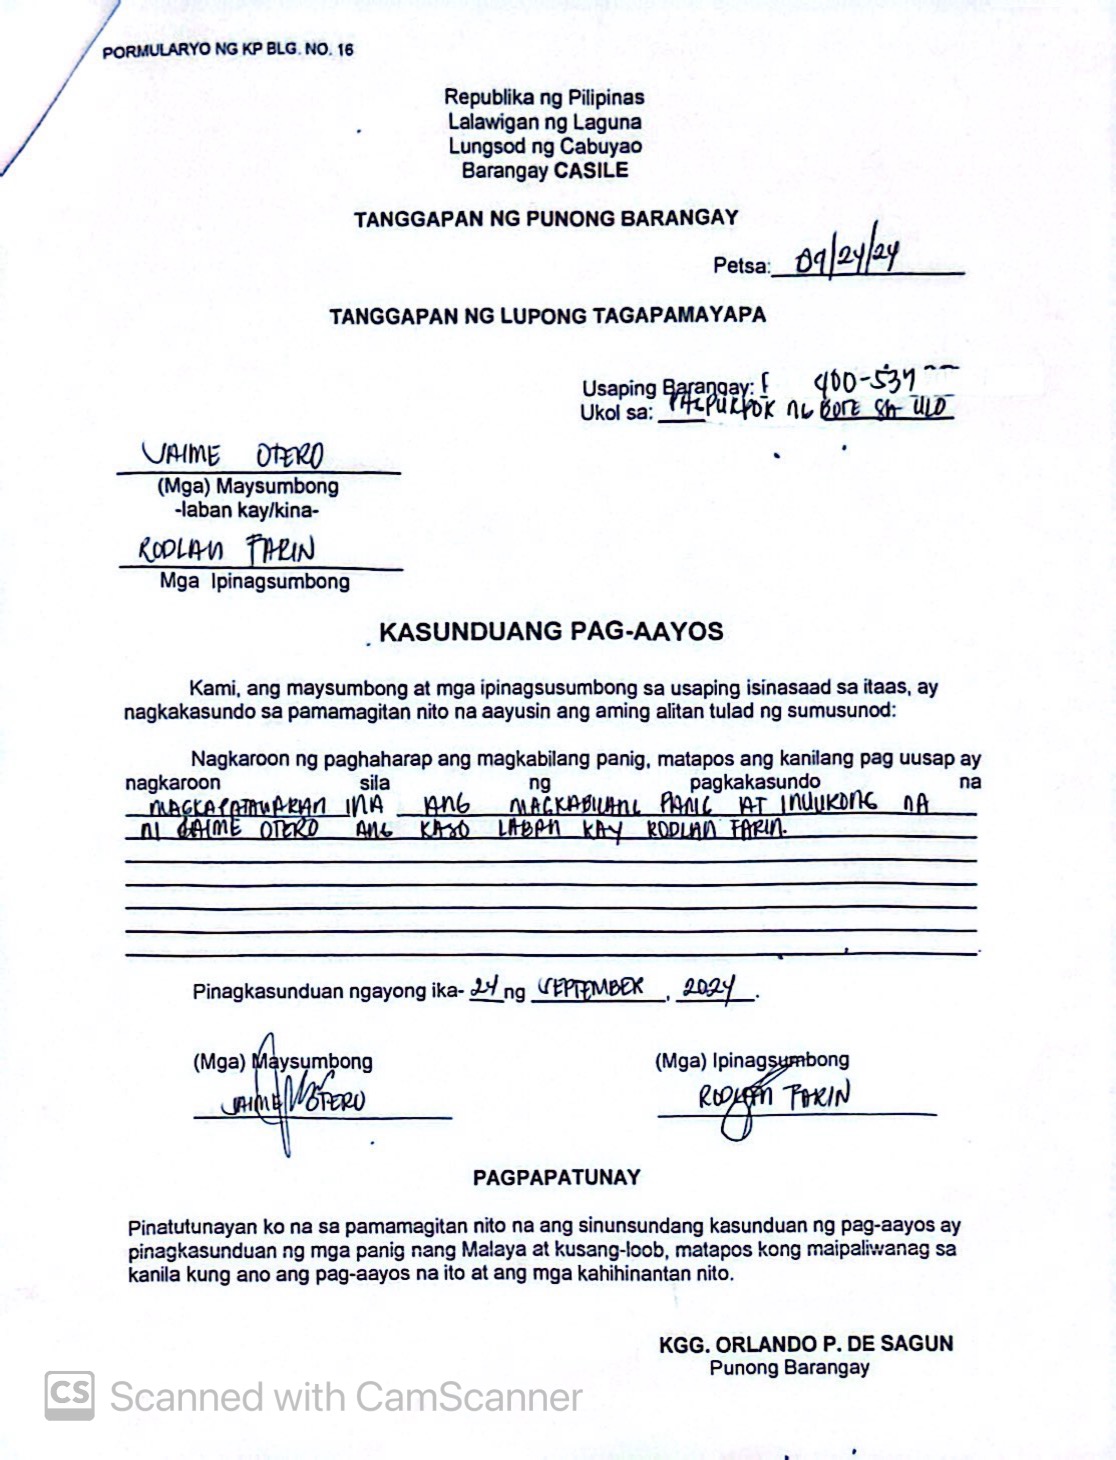 PORMULARYO NG KP BLG. NO. 16
Republika ng Pilipinas
Lalawigan ng Laguna
Lungsod ng Cabuyao
Barangay CASILE
TANGGAPAN NG PUNONG BARANGAY
Petsa: 09/24/24
TANGGAPAN NG LUPONG TAGAPAMAYAPA
Usaping Barangay: 400-537
Ukol sa: PAGPUKPOK NG BOTE SA ULO
JAIME OTERO
(Mga) Maysumbong
-laban kay/kina-
RODLAN FARIN
Mga Ipinagsumbong
KASUNDUANG PAG-AAYOS
Kami, ang maysumbong at mga ipinagsusumbong sa usaping isinasaad sa itaas, ay
nagkakasundo sa pamamagitan nito na aayusin ang aming alitan tulad ng sumusunod:
Nagkaroon ng paghaharap ang magkabilang panig, matapos ang kanilang pag uusap ay
nagkaroon sila ng pagkakasundo na
MAGKAPATAWARAN ANG MAGKABILANG PANIG AT INUUKONG NA
NI JAIME OTERO ANG KASO LABAN KAY RODLAN FARIN.
Pinagkasunduan ngayong ika- 24 ng SEPTEMBER, 2024.
(Mga) Maysumbong (Mga) Ipinagsumbong
JAIME OTERO RODLAN FARIN
PAGPAPATUNAY
Pinatutunayan ko na sa pamamagitan nito na ang sinunsundang kasunduan ng pag-aayos ay
pinagkasunduan ng mga panig nang Malaya at kusang-loob, matapos kong maipaliwanag sa
kanila kung ano ang pag-aayos na ito at ang mga kahihinantan nito.
KGG. ORLANDO P. DE SAGUN
Punong Barangay
CS Scanned with CamScanner